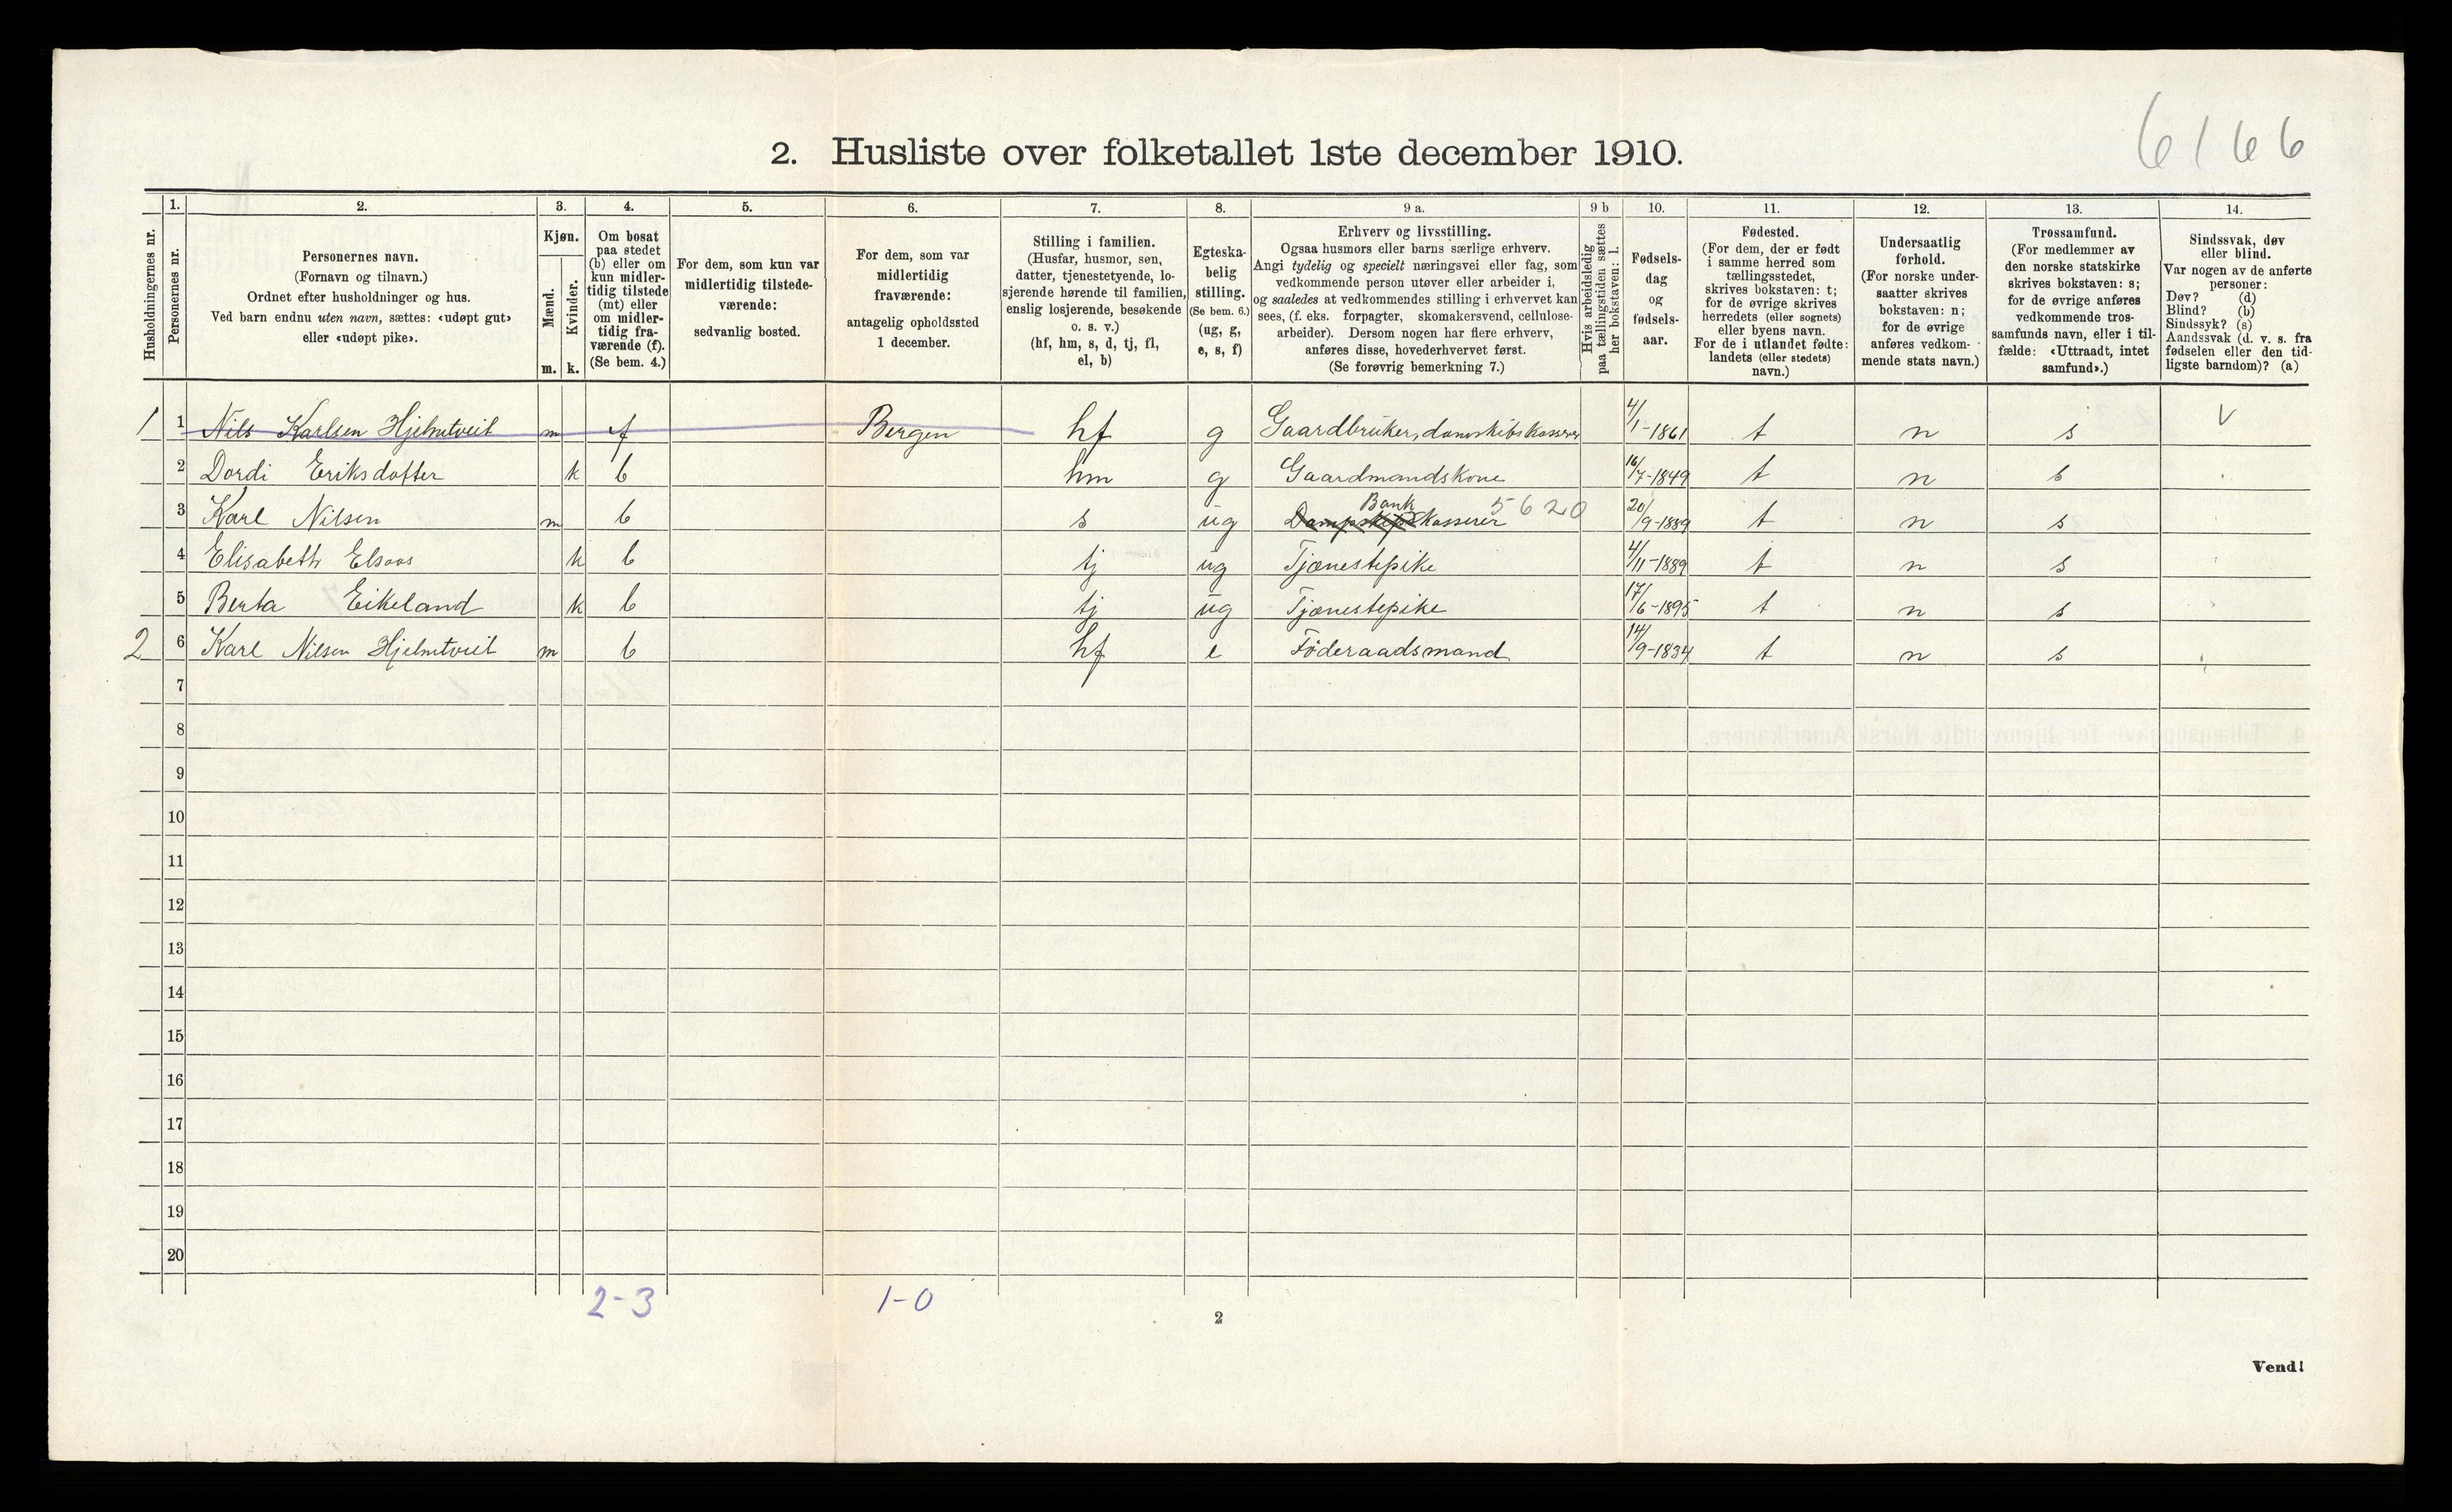 6166
2. Husliste over folketallet 1ste december 1910.
Husholdningernes nr.
1.
Personernes nr.
2.
Personernes navn.
(Fornavn og tilnavn.)
Ordnet efter husholdninger og hus.
Ved barn endnu uten navn, sættes: «udøpt gut»
eller «udøpt pike».
3.
Kjøn.
Mænd.
m.
Kvinder.
k.
4.
Om bosat
paa stedet
(b) eller om
kun midler-
tidig tilstede
(mt) eller
om midler-
tidig fra-
værende (f).
(Se bem. 4.)
5.
For dem, som kun var
midlertidig tilstede-
værende:
sedvanlig bosted.
6.
For dem, som var
midlertidig
fraværende:
antagelig opholdssted
1 december.
7.
Stilling i familien.
(Husfar, husmor, søn,
datter, tjenestetyende, lo-
sjerende hørende til familien,
enslig losjerende, besøkende
o. s. v.)
(hf, hm, s, d, tj, fl,
el, b)
8.
Egteska-
belig
stilling.
(Se bem. 6.)
(ug, g,
e, s, f)
9 a.
Erhverv og livsstilling.
Ogsaa husmors eller barns særlige erhverv.
Angi tydelig og specielt næringsvei eller fag, som
vedkommende person utøver eller arbeider i,
og saaledes at vedkommendes stilling i erhvervet kan
sees, (f. eks. forpagter, skomakersvend, cellulose-
arbeider). Dersom nogen har flere erhverv,
anføres disse, hovederhvervet først.
(Se forøvrig bemerkning 7.)
9 b
Hvis arbeidsledig
paa tællingstiden sættes
her bokstaven: l.
10.
Fødsels-
dag
og
fødsels-
aar.
11.
Fødested.
(For dem, der er født
i samme herred som
tællingsstedet,
skrives bokstaven: t;
for de øvrige skrives
herredets (eller sognets)
eller byens navn.
For de i utlandet fødte:
landets (eller stedets)
navn.)
12.
Undersaatlig
forhold.
(For norske under-
saatter skrives
bokstaven: n;
for de øvrige
anføres vedkom-
mende stats navn.)
13.
Trossamfund.
(For medlemmer av
den norske statskirke
skrives bokstaven: s;
for de øvrige anføres
vedkommende tros-
samfunds navn, eller i til-
fælde: «Uttraadt, intet
samfund».)
14.
Sindssvak, døv
eller blind.
Var nogen av de anførte
personer:
Døv? (d)
Blind? (b)
Sindssyk? (s)
Aandssvak (d. v. s. fra
fødselen eller den tid-
ligste barndom)? (a)
1 1 Nils Karlsen Hjelmtveit m f Bergen hf g Gaardbruker, damskibskasserer 4/1-1861 t n s V
2 Dordi Eriksdotter k b hm g Gaardmandskone 16/7-1849 t n s
Bank 5620
3 Karl Nilsen m b s ug Dampskips kasserer 20/9-1889 t n s
4 Elisabeth Elsaas k b tj ug Tjænestepike 4/11-1889 t n s
5 Berta Eikeland k b tj ug Tjænestepike 17/6-1895 t n s
2 6 Karl Nilsen Hjelmtveit m b hf e Föderaadsmand 14/9-1834 t n s
7
8
9
10
11
12
13
14
15
16
17
18
19
20
2-3 1-0
2
Vend!